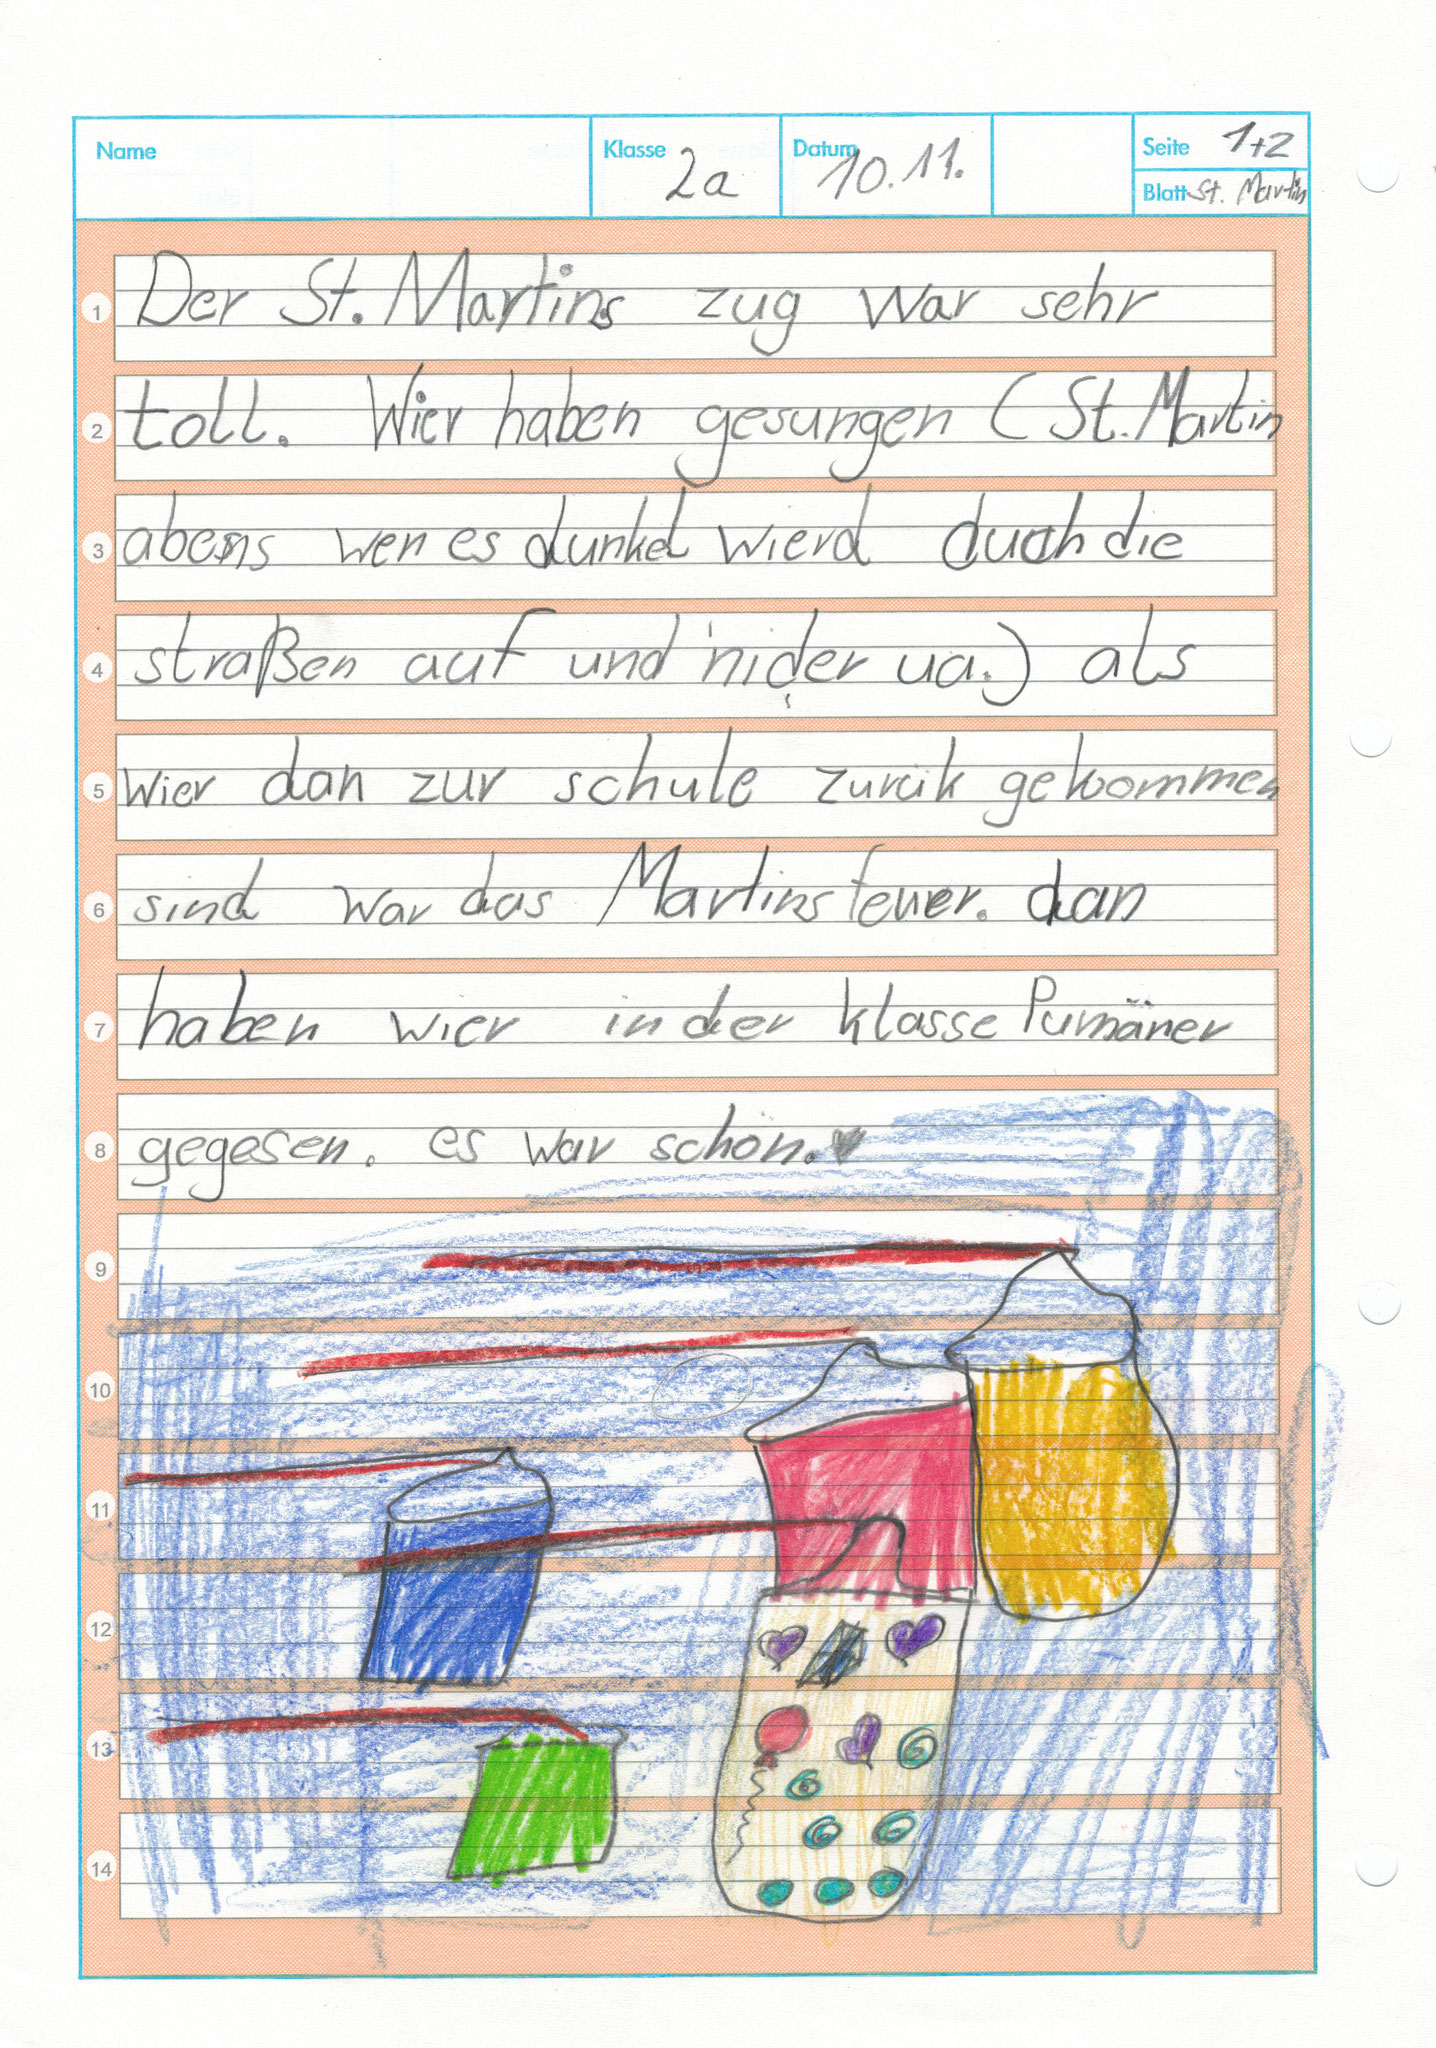 Name
Klasse 2a
Datum 10.11.
Seite 1+2
Blatt St. Martin
1 Der St. Martins zug war sehr
2 toll. Wier haben gesungen (St. Martin
3 abens wen es dunkel wierd duch die
4 straßen auf und nider ua.) als
5 wier dan zur schule zurük gekommen
6 sind war das Martinsfeuer. dan
7 haben wier in der klasse Pumäner
8 gegesen. es war schön.
9
10
11
12
13
14